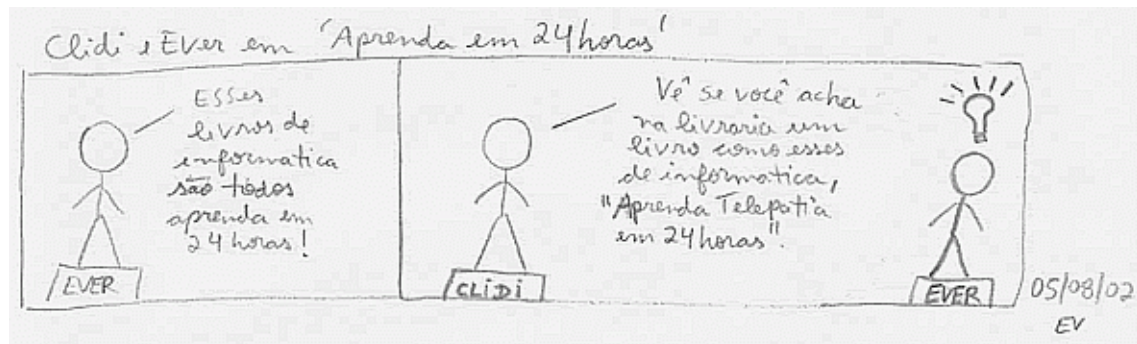 Clidi e Ever em 'Aprenda em 24 horas'
Esses
livros de
informatica
são todos
aprenda em
24 horas!
EVER
Vê se você acha
na livraria um
livro como esses
de informatica,
"Aprenda Telepatia
em 24 horas".
CLiDi
EVER
05/08/02
EV